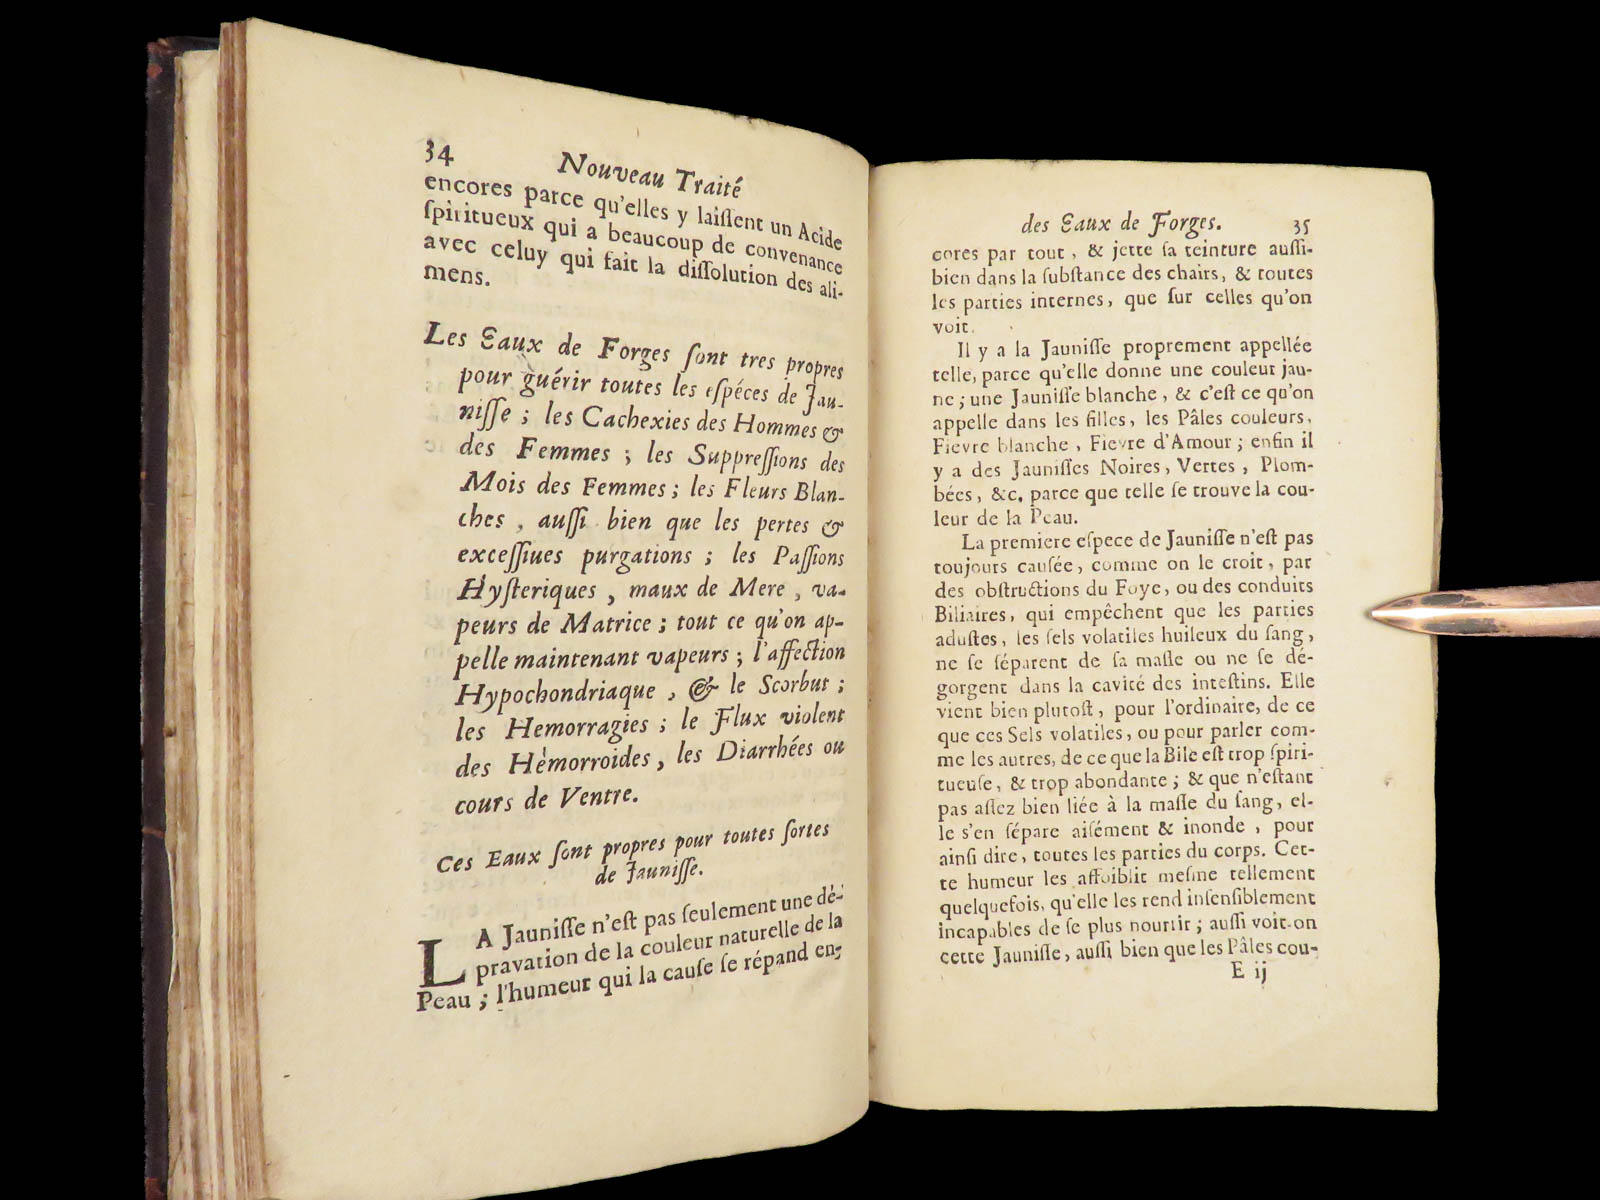 34
Nouveau Traité
encores parce qu'elles y laiſſent un Acide
ſpiritueux qui a beaucoup de convenance
avec celuy qui fait la diſſolution des ali-
mens.
Les Eaux de Forges ſont tres propres
pour guérir toutes les eſpéces de Jau-
niſſe ; les Cachexies des Hommes &
des Femmes ; les Suppreſſions des
Mois des Femmes ; les Fleurs Blan-
ches , auſſi bien que les pertes &
exceſſiues purgations ; les Paſſions
Hyſteriques , maux de Mere , va-
peurs de Matrice ; tout ce qu'on ap-
pelle maintenant vapeurs ; l'affection
Hypochondriaque , & le Scorbut ;
les Hemorragies ; le Flux violent
des Hèmorroides , les Diarrhées ou
cours de Ventre.
Ces Eaux ſont propres pour toutes ſortes
de Jauniſſe.
LA Jauniſſe n'eſt pas ſeulement une dé-
pravation de la couleur naturelle de la
Peau ; l'humeur qui la cauſe ſe répand en-
des Eaux de Forges. 35
cores par tout , & jette ſa teinture auſſi-
bien dans la ſubſtance des chairs, & toutes
les parties internes, que ſur celles qu'on
voit.
Il y a la Jauniſſe proprement appellée
telle, parce qu'elle donne une couleur jau-
ne ; une Jauniſſe blanche , & c'eſt ce qu'on
appelle dans les filles, les Pâles couleurs,
Fievre blanche , Fievre d'Amour ; enfin il
y a des Jauniſſes Noires, Vertes , Plom-
bées, &c. parce que telle ſe trouve la cou-
leur de la Peau.
La premiere eſpece de Jauniſſe n'eſt pas
toujours cauſée, comme on le croit, par
des obſtructions du Foye, ou des conduits
Biliaires, qui empêchent que les parties
aduſtes, les ſels volatiles huileux du ſang,
ne ſe ſéparent de ſa maſſe ou ne ſe dé-
gorgent dans la cavité des inteſtins. Elle
vient bien plutoſt, pour l'ordinaire, de ce
que ces Sels volatiles, ou pour parler com-
me les autres, de ce que la Bile eſt trop ſpiri-
tueuſe, & trop abondante ; & que n'eſtant
pas aſſez bien liée à la maſſe du ſang, el-
le s'en ſépare aiſément & inonde , pour
ainſi dire, toutes les parties du corps. Cet-
te humeur les affoiblit meſme tellement
quelquefois, qu'elle les rend inſenſiblement
incapables de ſe plus nourrir ; auſſi voit-on
cette Jauniſſe, auſſi bien que les Pâles cou-
E ij